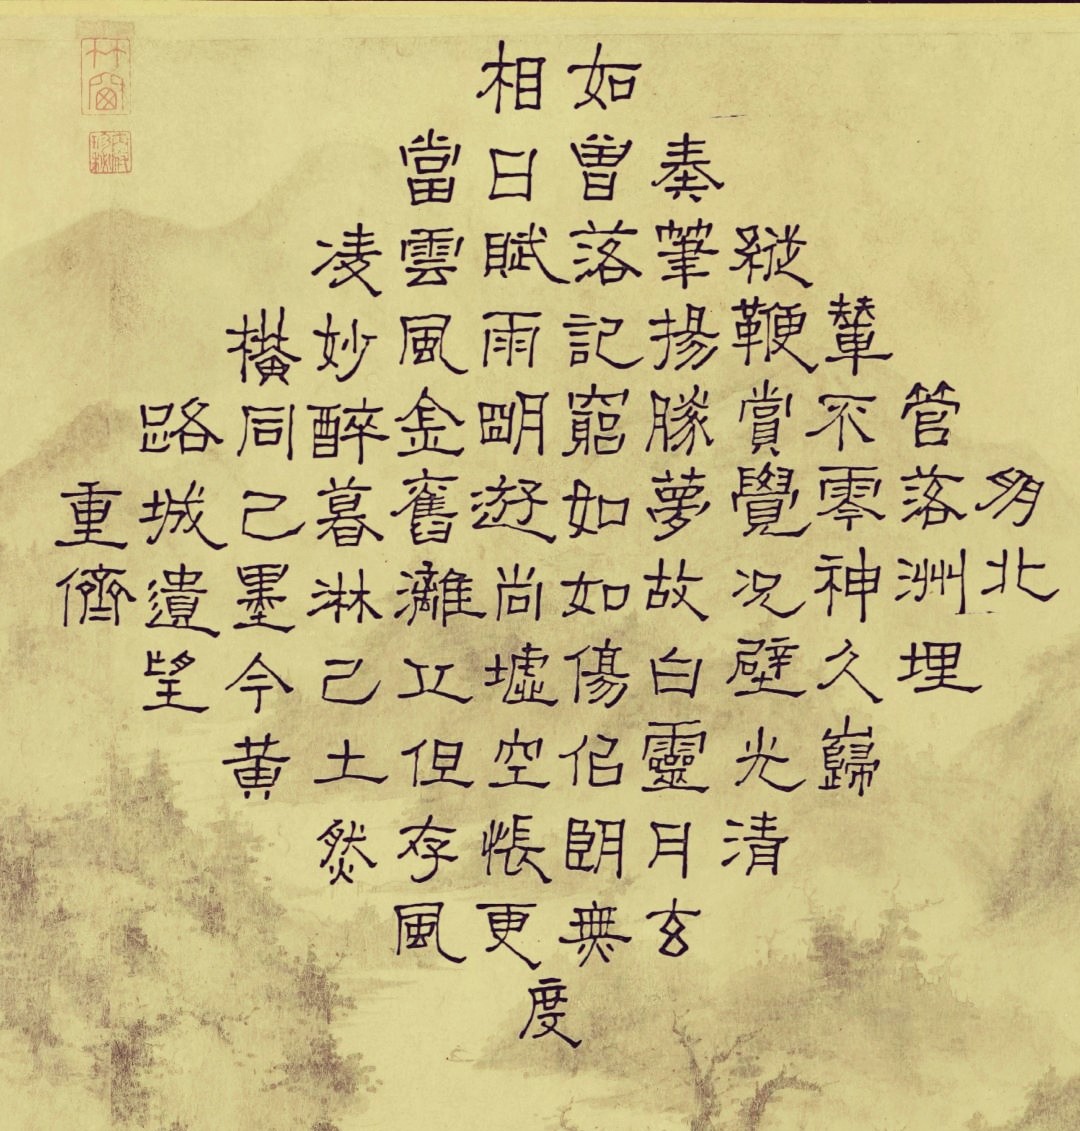 相如
當日曾奏
凌雲賦落筆縱
橫妙風雨記揚鞭輦
路同醉金明窮勝賞不管
重城已暮舊遊如夢覺零落朋
儕遺墨淋灕尚如故況神洲北
望今已丘墟傷白壁久埋
黃土但空佀靈光巋
然存悵朗月清
風更無玄
度
竹窗